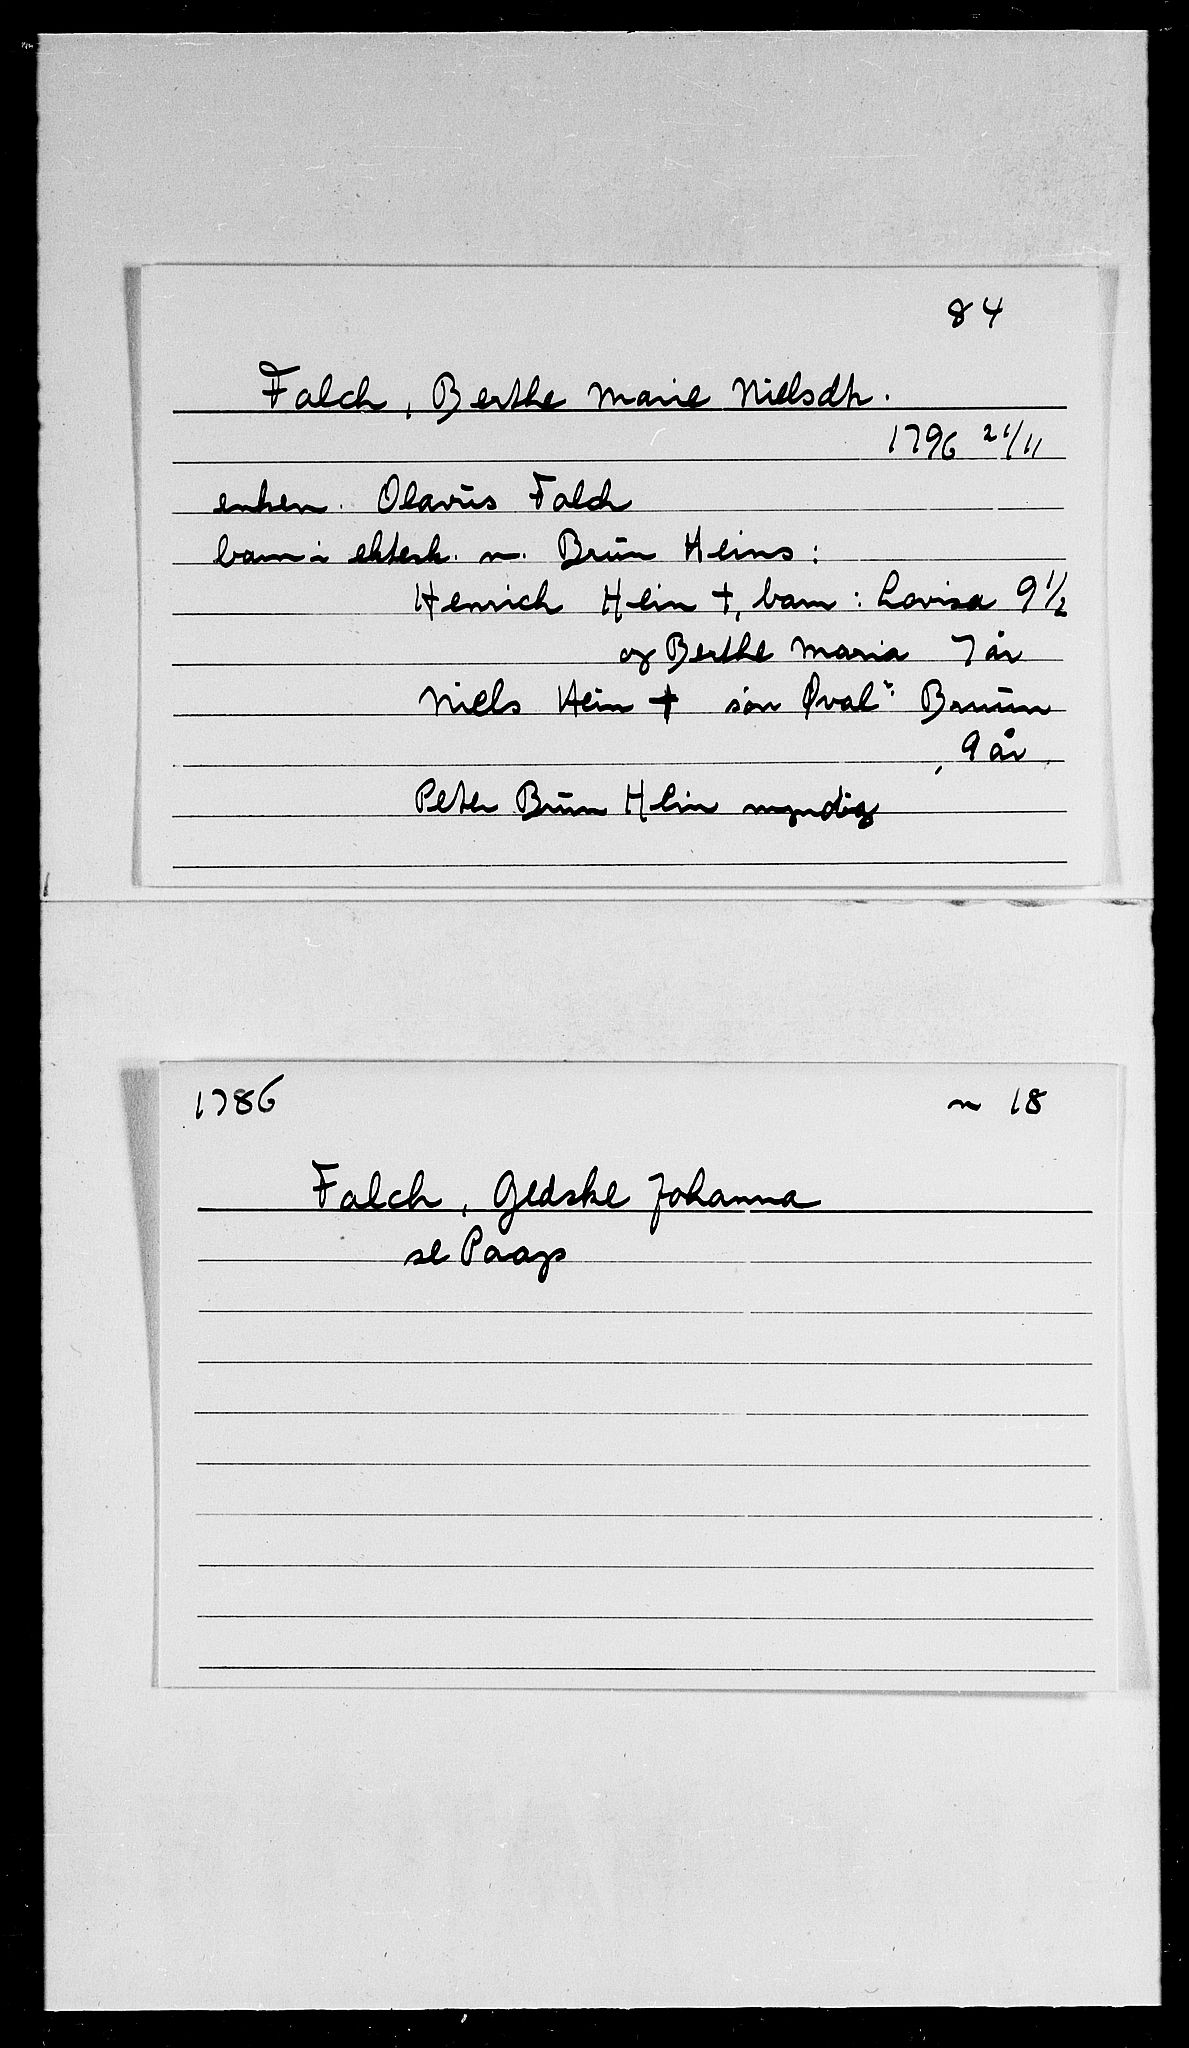 84
Falch, Berthe Marie Nielsdtr.
1796 21/11
enken. Olavūs Falch
barn i ektesk. m. Brūn Heins:
Henrich Hein †, barn: Lovisa 9 1/2
og Berthe Maria 7 år
Niels Hein † søn Bruun
, 9 år.
Peter Brūn Hein myndig
1786 n 18
Falch, Gedske Johanna
se Paap